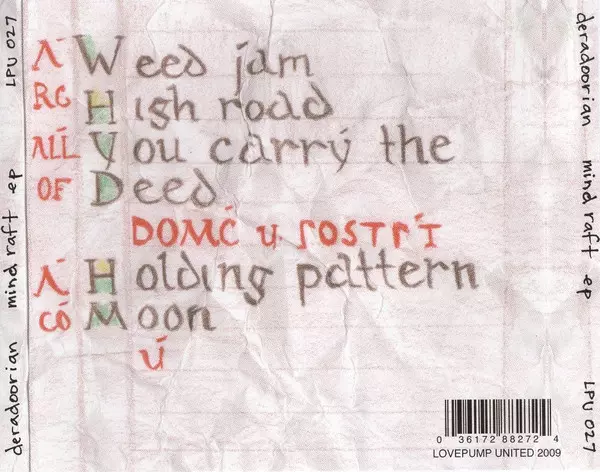 deradoorian mind raft ep LPU 027
Weed jam
RG High road
ALL You carry the
OF Deed
DOMĆ U
Holding pattern
CÓ Moon
Ú
deradoorian mind raft ep LPU 027
0 36172 88272 4
LOVEPUMP UNITED 2009